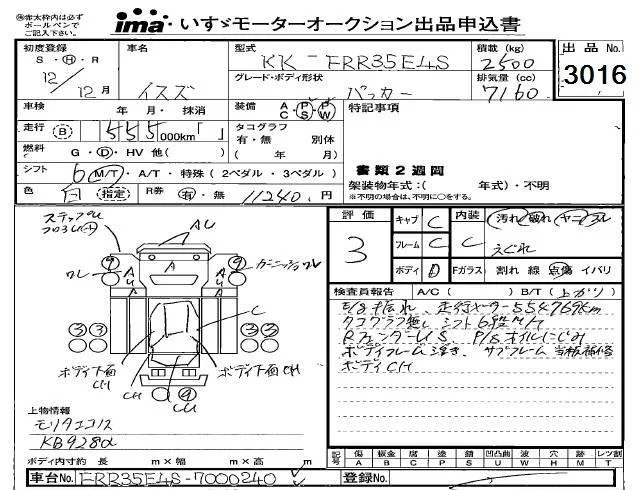 ※赤太枠内は必ず
ボールペンで
ご記入下さい。
ima いすゞモーターオークション出品申込書
初度登録 車名 型式 積載(kg) 出品No.
S・H・R KK-FRR35E4S 2500 3016
12/12月 いすズ グレード・ボディ形状 排気量(cc)
パッカー 7160
車検 年 月・抹消 装備 A P P C S W 特記事項
走行 B 555000km「 」 タコグラフ
有・無 別体
燃料 G・D・HV 他( ) ( 年 月) 書類2週間
シフト 6 M/T・A/T・特殊(2ペダル・3ペダル) 架装物年式:( 年式)・不明
色 白 指定 R券 有・無 11240.円 ※不明の場合は、不明に○をする。
評価 3
キャブ C 内装 C 汚れ 破れ ヤニ スレ
フレーム C えぐれ
ボディ D Fガラス 割れ 線 点傷 イバリ
ステップ曲
AU
ワレ
ガーニッシュワレ
A
A
U
A
U
C
9
9
3
3
3
3
9
ボディ下面
CH
CH
CU
ボディ下面CH
検査員報告 A/C( ) B/T(上がり)
走行メーター554769km
タコグラフ無し シフト6段M/T
RフェンダーUS P/Sオイルにじみ
ボディフレーム浮き、サブフレーム当板補修
ボディCH
上物情報
モリタエコノス
KB928α
ボディ内寸約 長 m×幅 m×高 m
記号 傷 A 板金 B 腐 C 塗 P 錆 S 凹凸曲 U 波 W 穴 H ミホ M レツ割 T
車台No. FRR35E4S-7000240 登録No.